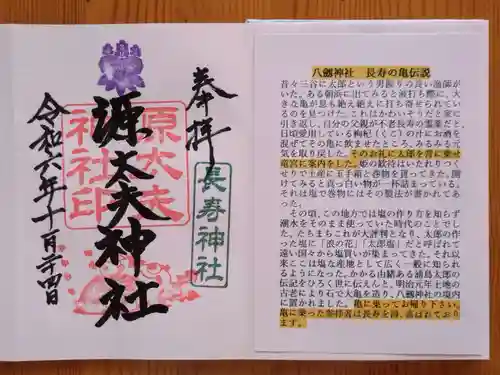 奉拝
長寿神社
源太夫神社
令和六年十一月二十四日
八劔神社　長寿の亀伝説
昔々三谷に太郎という男振りの良い漁師が
いた。ある朝浜に出てみると波打ち際に、大
きな亀が息も絶え絶えに打ち寄せられている
のを見つけた。これはかわいそうだと家に
引き返し、自分の父親が不老長寿の霊薬だと
日頃愛用している枸杞（くこ）の汁にお酒を
混ぜてその亀に飲ませたところ、みるみる元
気を取り戻した。そのお礼に太郎を背に乗せ
竜宮に案内をした。姫の歓待はいたれりつく
せりで土産に玉手箱と巻物を貰ってきた。開
けてみると真っ白い物が一杯詰まっている。
それは塩で巻物にはその製法が書かれてあ
った。
その頃、この地方では塩の作り方を知らず
潮水をそのまま使っていた時代のことでし
た。たちまちこれが大評判となり、太郎の作
った塩に「浪の花」「太郎塩」だと呼ばれて
遠い国々から塩買いが集まってきた。それ以
来ここは塩な産地として広く一般に知られ
るようになった。かかる由緒ある浦島太郎の
伝記をひろく世に伝えんと、明治元年土地の
古老により石で大亀を造り、八劔神社の境内
に置かれました。亀に乗ってお帰り下さい。
亀に乗った参拝者は長寿を得、喜ばれており
ます。